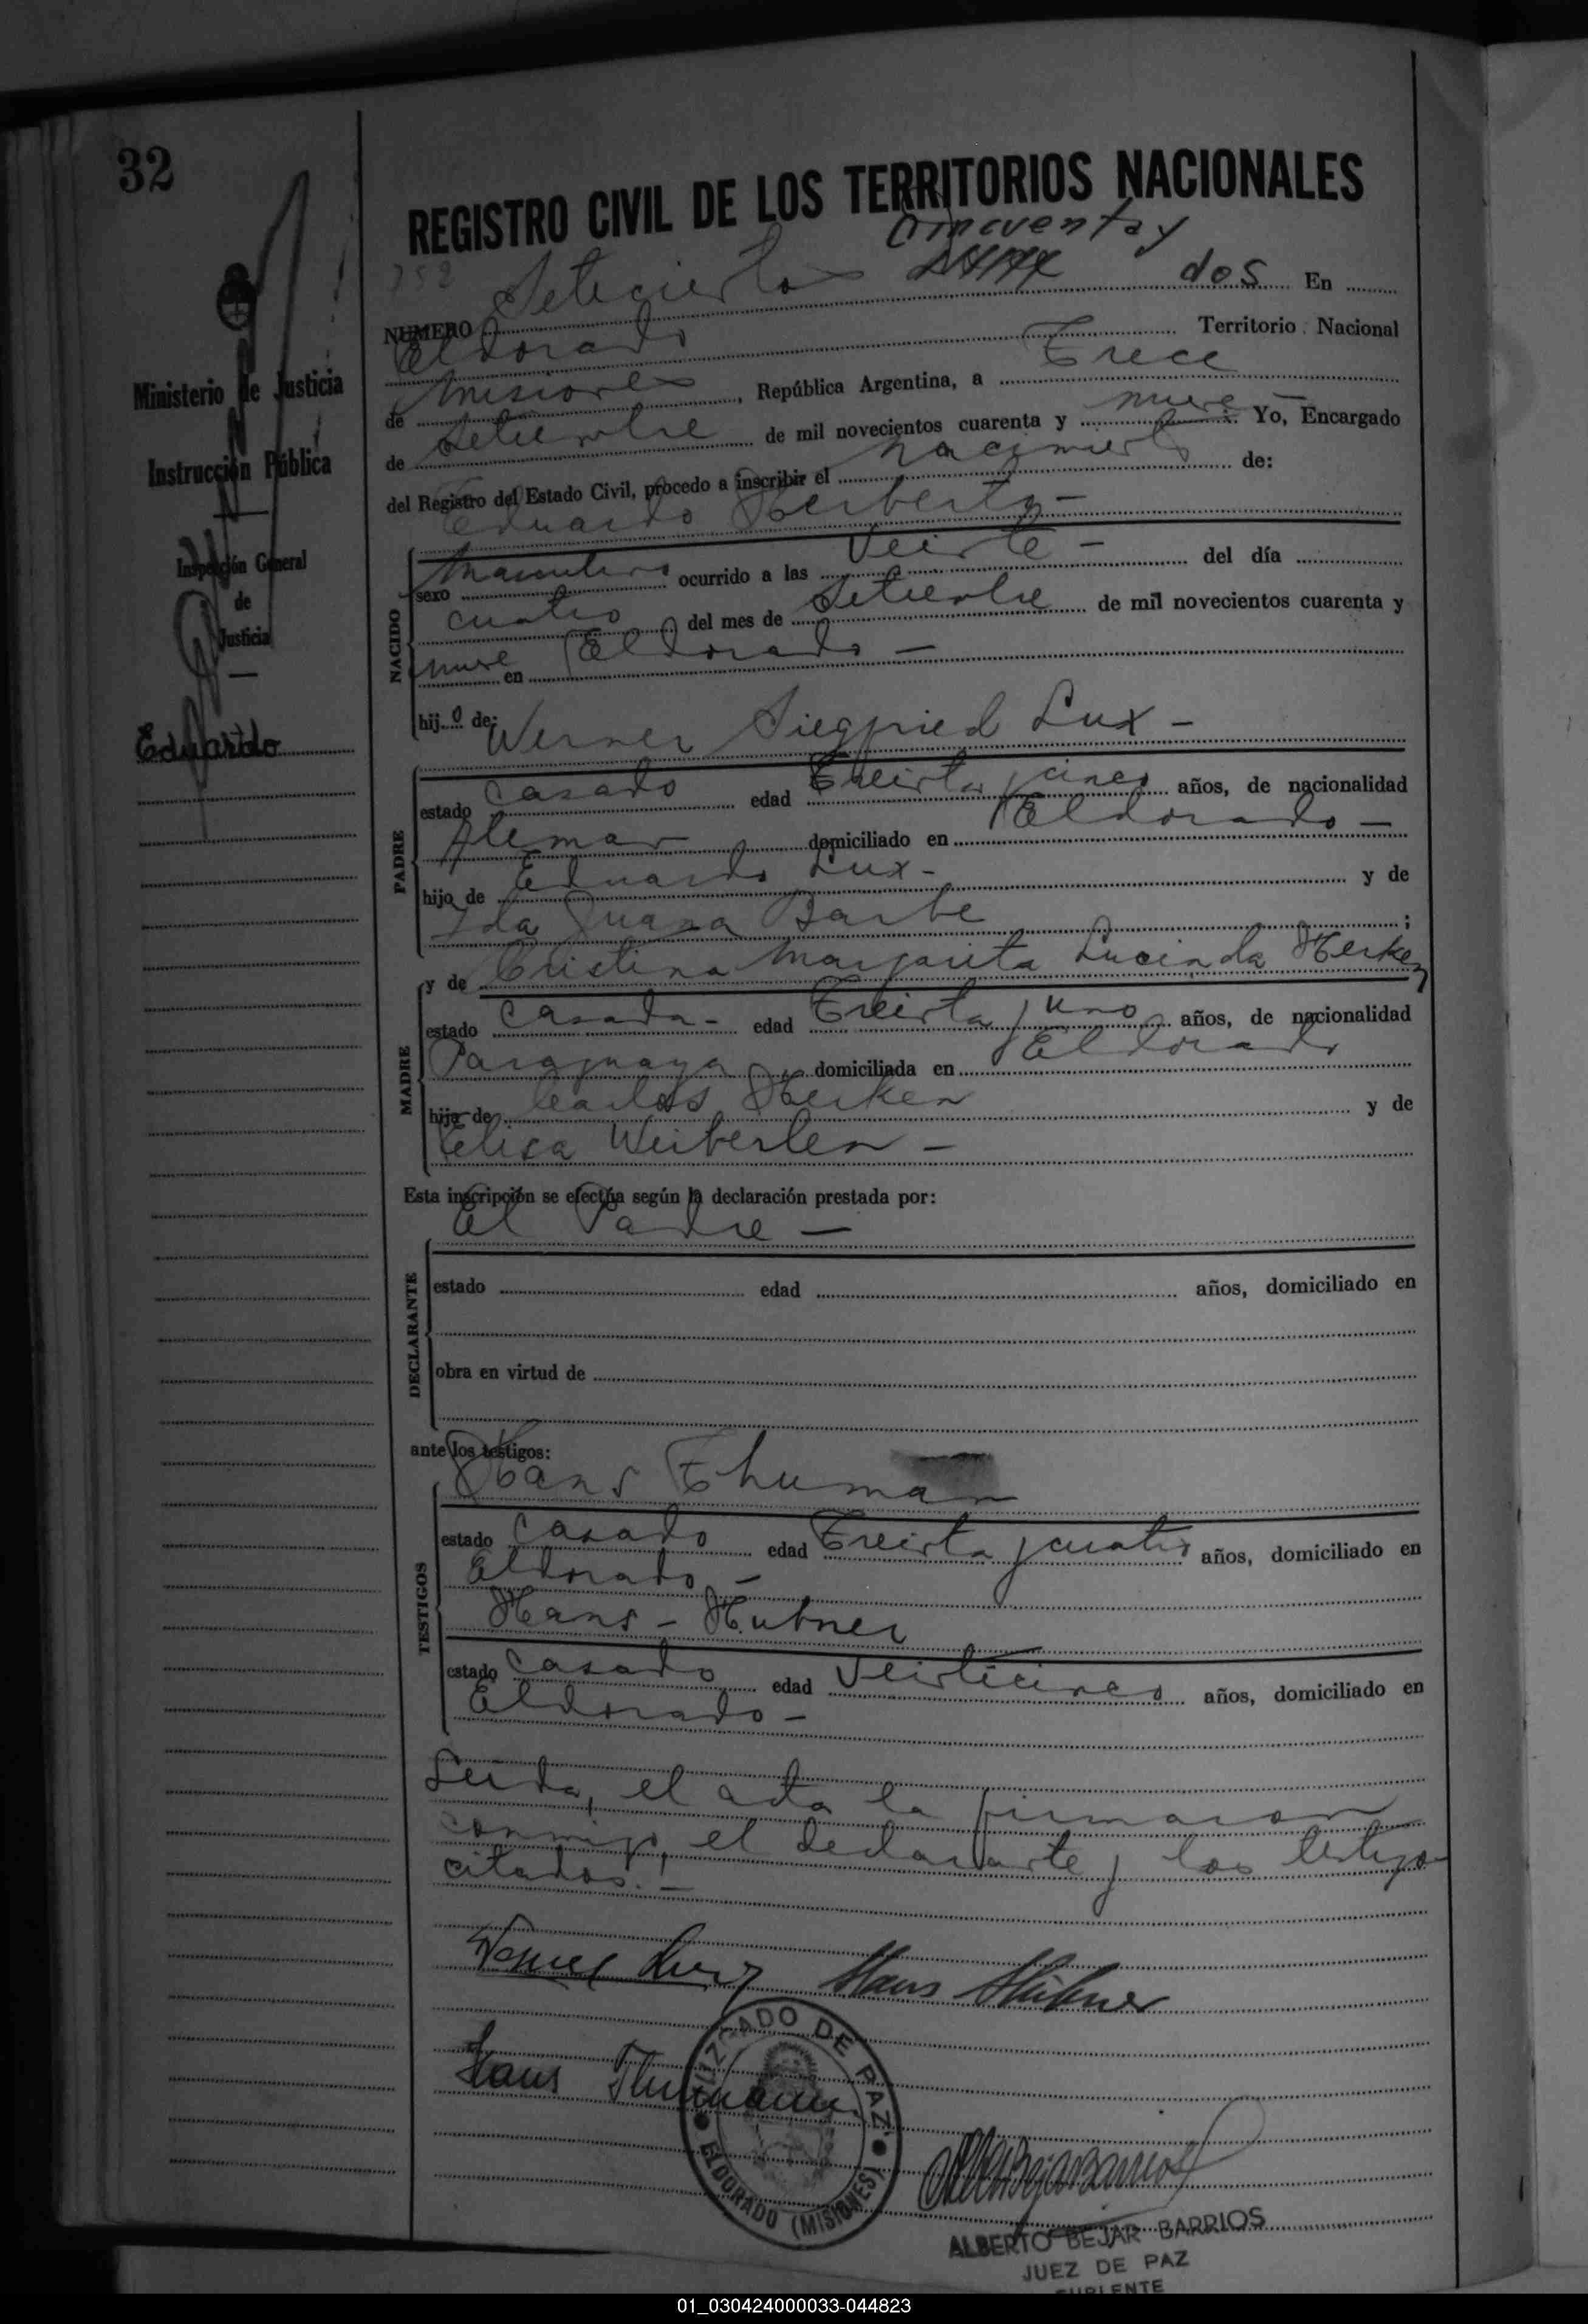 32
REGISTRO CIVIL DE LOS TERRITORIOS NACIONALES
Cincuenta y
752
NUMERO Setecientos dos En
Eldorado Territorio Nacional
de Misiones, República Argentina, a Trece
de Setiembre de mil novecientos cuarenta y nueve Yo, Encargado
del Registro del Estado Civil, procedo a inscribir el nacimiento de:
Eduardo Herberto -
NACIDO
sexo Masculino ocurrido a las Veinte - del día
cuatro del mes de Setiembre de mil novecientos cuarenta y
nueve en Eldorado -
hijo de: Werner Siegfried Lux -
PADRE
estado Casado edad Treinta y cinco años, de nacionalidad
Aleman domiciliado en Eldorado -
hijo de Eduardo Lux - y de
Ida Juana Barbe ;
y de Cristina Margarita Lucinda Herken
MADRE
estado Casada - edad Treinta y uno años, de nacionalidad
Paraguaya domiciliada en Eldorado
hija de Carlos Herken y de
Elisa Weiberlen -
Esta inscripción se efectúa según la declaración prestada por:
El Padre -
DECLARANTE
estado edad años, domiciliado en
obra en virtud de
ante los testigos:
Hans Thuman
TESTIGOS
estado Casado edad Treinta y cuatro años, domiciliado en
Eldorado -
Hans - Hubner
estado Casado edad Veinticinco años, domiciliado en
Eldorado -
Leida, el acta la firmaron
conmigo, el declarante y los testigos
citados. -
Werner Lux Hans Hübner
Hans Thumann
JUZGADO DE PAZ
ELDORADO (MISIONES)
ALBERTO BEJAR BARRIOS
JUEZ DE PAZ
SUPLENTE
Ministerio de Justicia
Instrucción Pública
Inspección General
de
Justicia
Eduardo
01_030424000033-044823